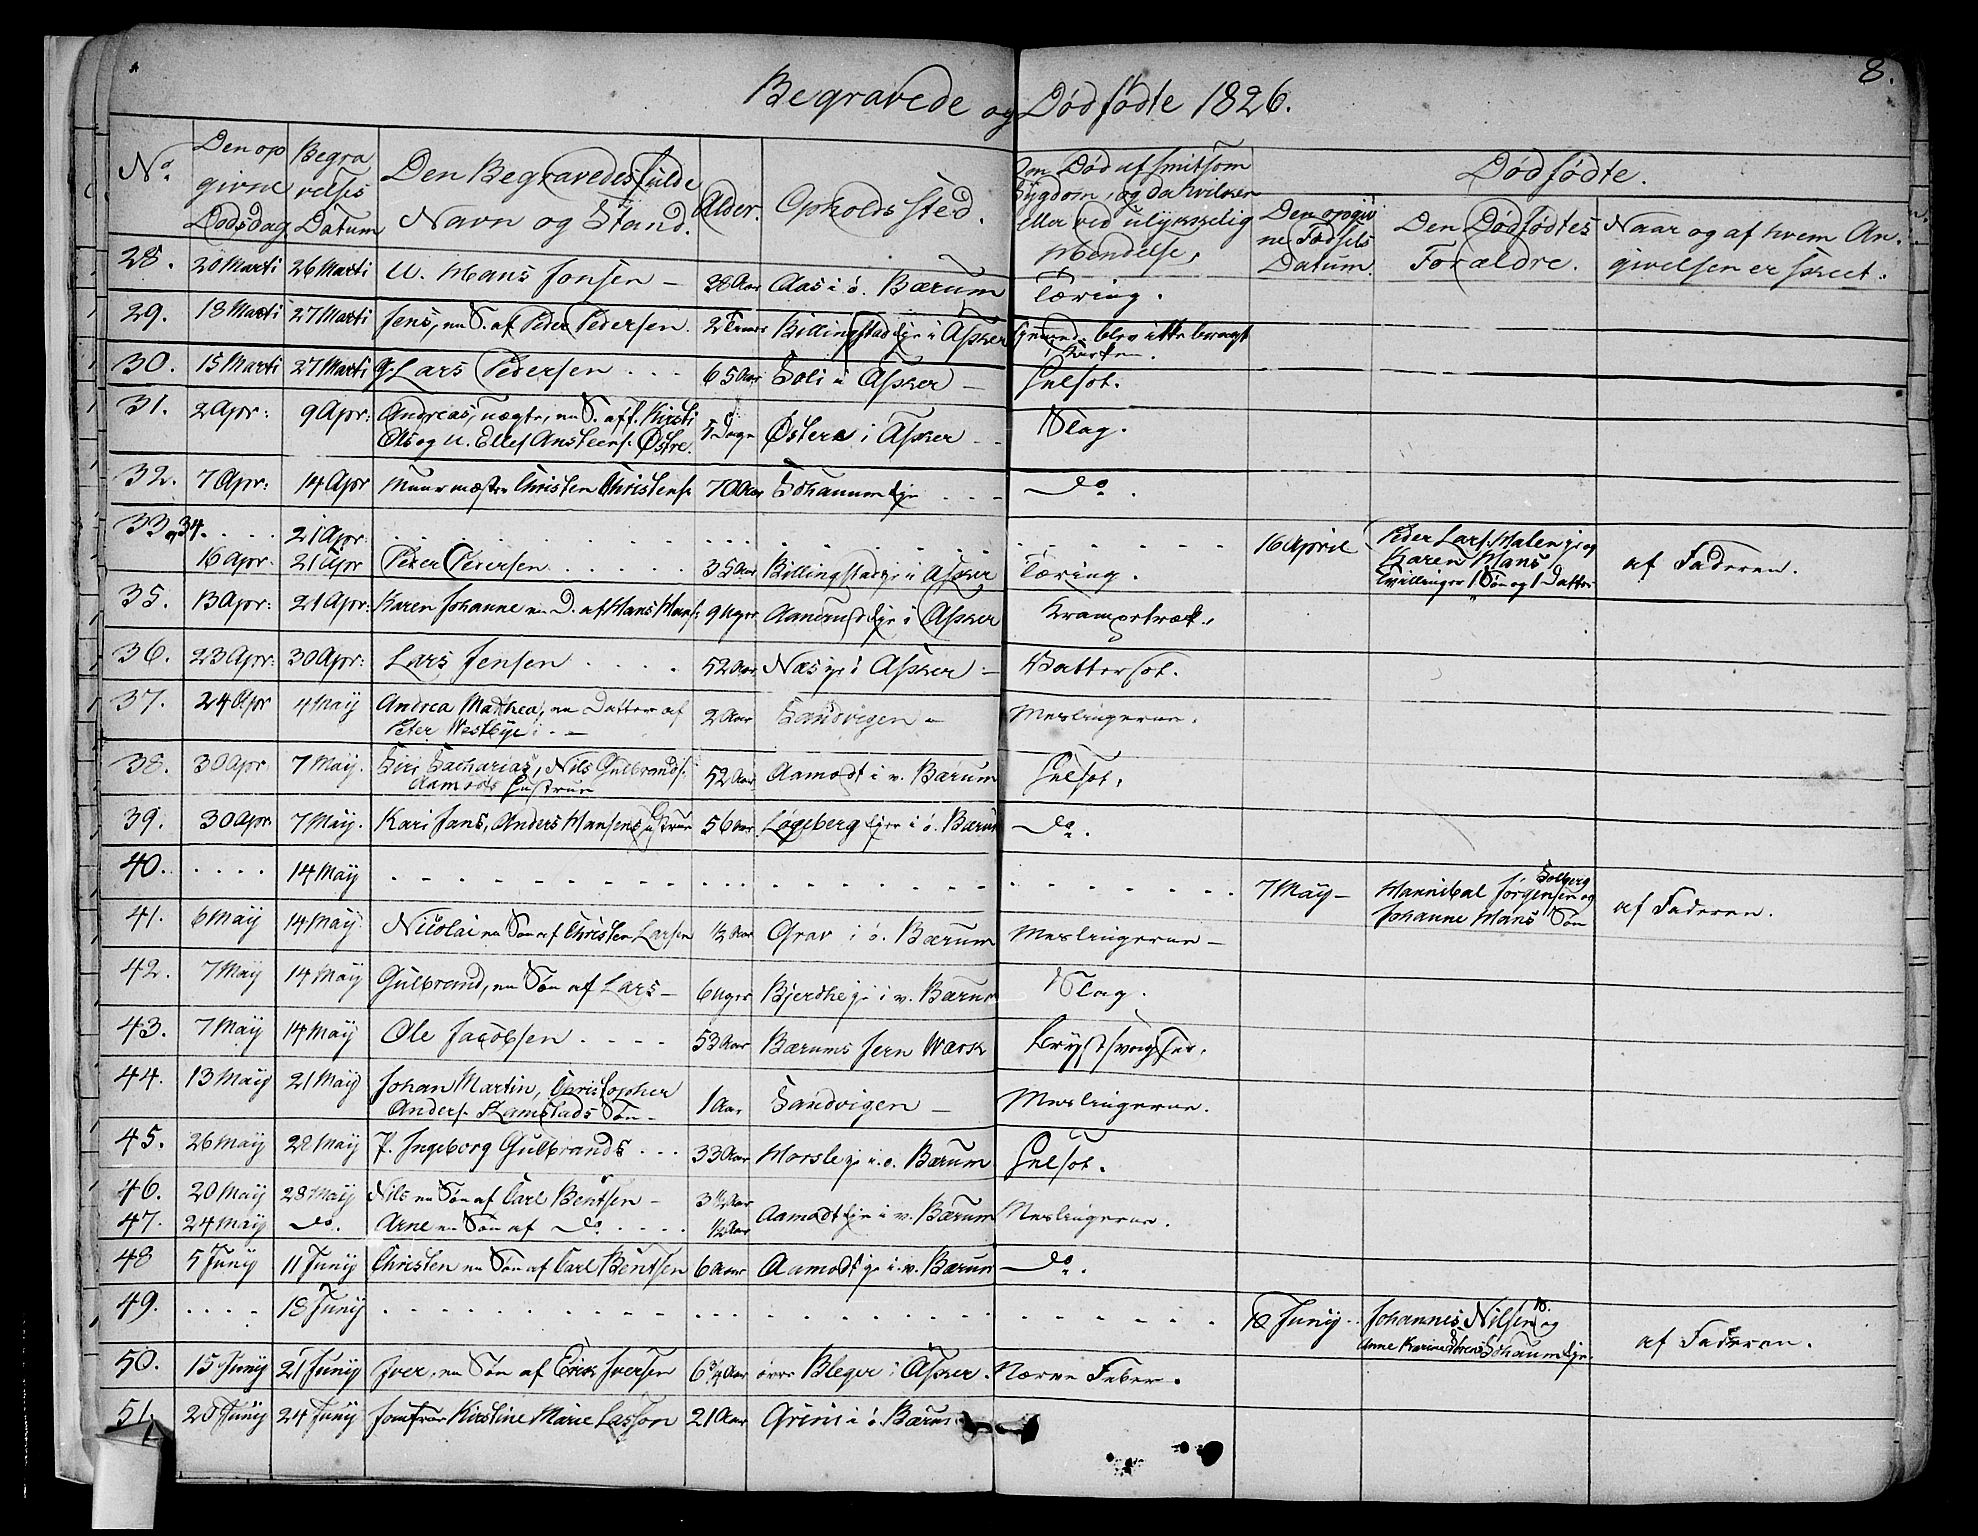 8.
Begravede og Dødfødte 1826.
No. Den op givne Dødsdag Begra velses Datum Den Begravedes fulde Navn og Stand. Alder. Opholdssted. Om Død af smitsom Sygdom, og da hvilken eller ved ulykkelig Hendelse, Dødfødte.
Den opgiv ne Fødsels Datum. Den Dødfødtes Forældre. Naar og af hvem An givelsen er skeet.
28. 20 Marti 26 Marti U. Hans Jonsen – 38 Aar Aas i ö. Bærum Tæring.
29. 18 Marti 27 Marti Jens, en S. af Peder Pedersen. 2 Billingstad eje i Asker blev itte bragt i Kirken.
30. 15 Marti 27 Marti g. Lars Pedersen . . . 65 Aar Soli i Asker – Gulsot.
31. 2 Apr: 9 Apr: Andreas, uægte, en S. af f. Kirsti
Ols og u. Ellef Ansteens. Østre. 5 Dage Østere i Asker – – Slag.
32. 7 Apr: 14 Apr Muurmæster Christen Christens: 70 Aar eje . . . Do.
33 34. . . . . 21 Apr: 16 April Peder Lars. Halen je og
16 Apr: 21 Apr Peder Pedersen . . . . . 35 Aar Billingstad je i Asker Tæring. Karen Hans, af Faderen.
Tvillinger 1 Søn og 1 Datter
35. 13 Apr: 21 Apr: Karen Johanne en D. af Hans Hans: 9 Uger eje i Asker Krampetræk.
36. 23 Apr: 30 Apr: Lars Jensen . . . . 52 Aar Næs je i Asker – Vattersot.
37. 24 Apr 4 Maij Andrea Mathea, en Datter af
Peter Westbye . – 2 Aar Sandvigen – Meslingerne.
38. 30 Apr. 7 Maij. Siri Sacharias, Nils Gulbrands:
Aamodts Hustrue 52 Aar Aamodt i v. Bærum Gulsot.
39. 30 Apr 7 Maij. Kari Jans, Anders Hansens Hustrue 56 Aar Løgeberg ejer i ö. Bærum Do.
40. . . . . 14 Maij 7 Maij – Hannibal Jørgensen Solberg og
Johanne Hans Søn af Faderen.
41. 6 Maij 14 Maij Nicolai en Søn af Christen Larsen ½ Aar Grav i ö. Bærum Meslingerne –
42. 7 Maij 14 Maij Gulbrand, en Søn af Lars – 6 Uger Bjerche je i v. Bærum Slag.
43. 7 Maij 14 Maij Ole Jacobsen . . . . 53 Aar Bærums Jern Værk Brystsvaghed.
44. 13 Maij 21 Maij Johan Martin, Christopher
Anders: Ramstads Søn – 1 Aar Sandvigen – Meslingerne.
45. 26 Maij 28 Maij P. Ingeborg Gulbrands . . . 33 Aar Horsle je i ö. Bærum Gulsot.
46. 20 Maij 28 Maij Nils en Søn af Carl Bentsen – 3 ½ Aar
47. 24 Maij do. Arne en Søn af do. . . . . ½ Aar Aamodt eje i v. Bærum Meslingerne.
48 5 Junij 11 Junij Christen en Søn af Carl Bentsen 6 Aar Aamodt je i v. Bærum Do.
49. . . . . 18 Junij Junij. Johannes Nilsen og
Anne Karine eje. af Faderen.
50. 15 Junij 21 Junij Iver, en Søn af Erich Iversen 6 ¾ Aar övre Bleger i Asker. Nerve Feber.
51. 20 Junij 24 Junij Jomfrue Kirstine Marie Lasson 21 Aar Grini i ö. Bærum.